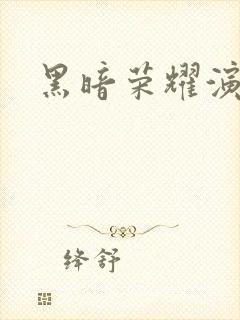 黑暗荣耀演
绛舒